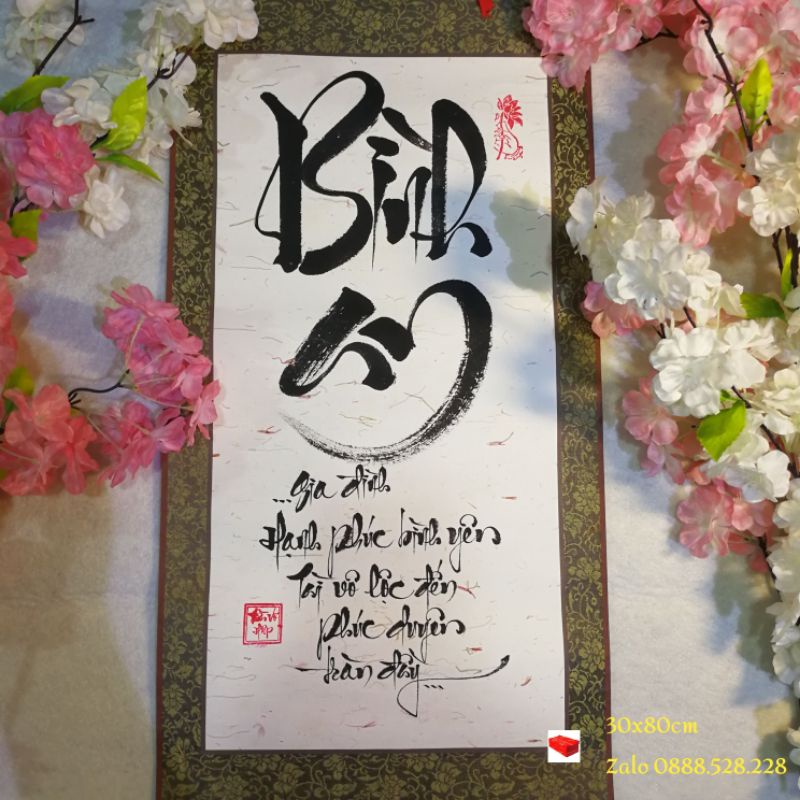 Bình
an
...Gia đình
Hạnh phúc bình yên
Tài vô lộc đến
phúc duyên
tràn đầy...
30x80cm
Zalo 0888.528.228